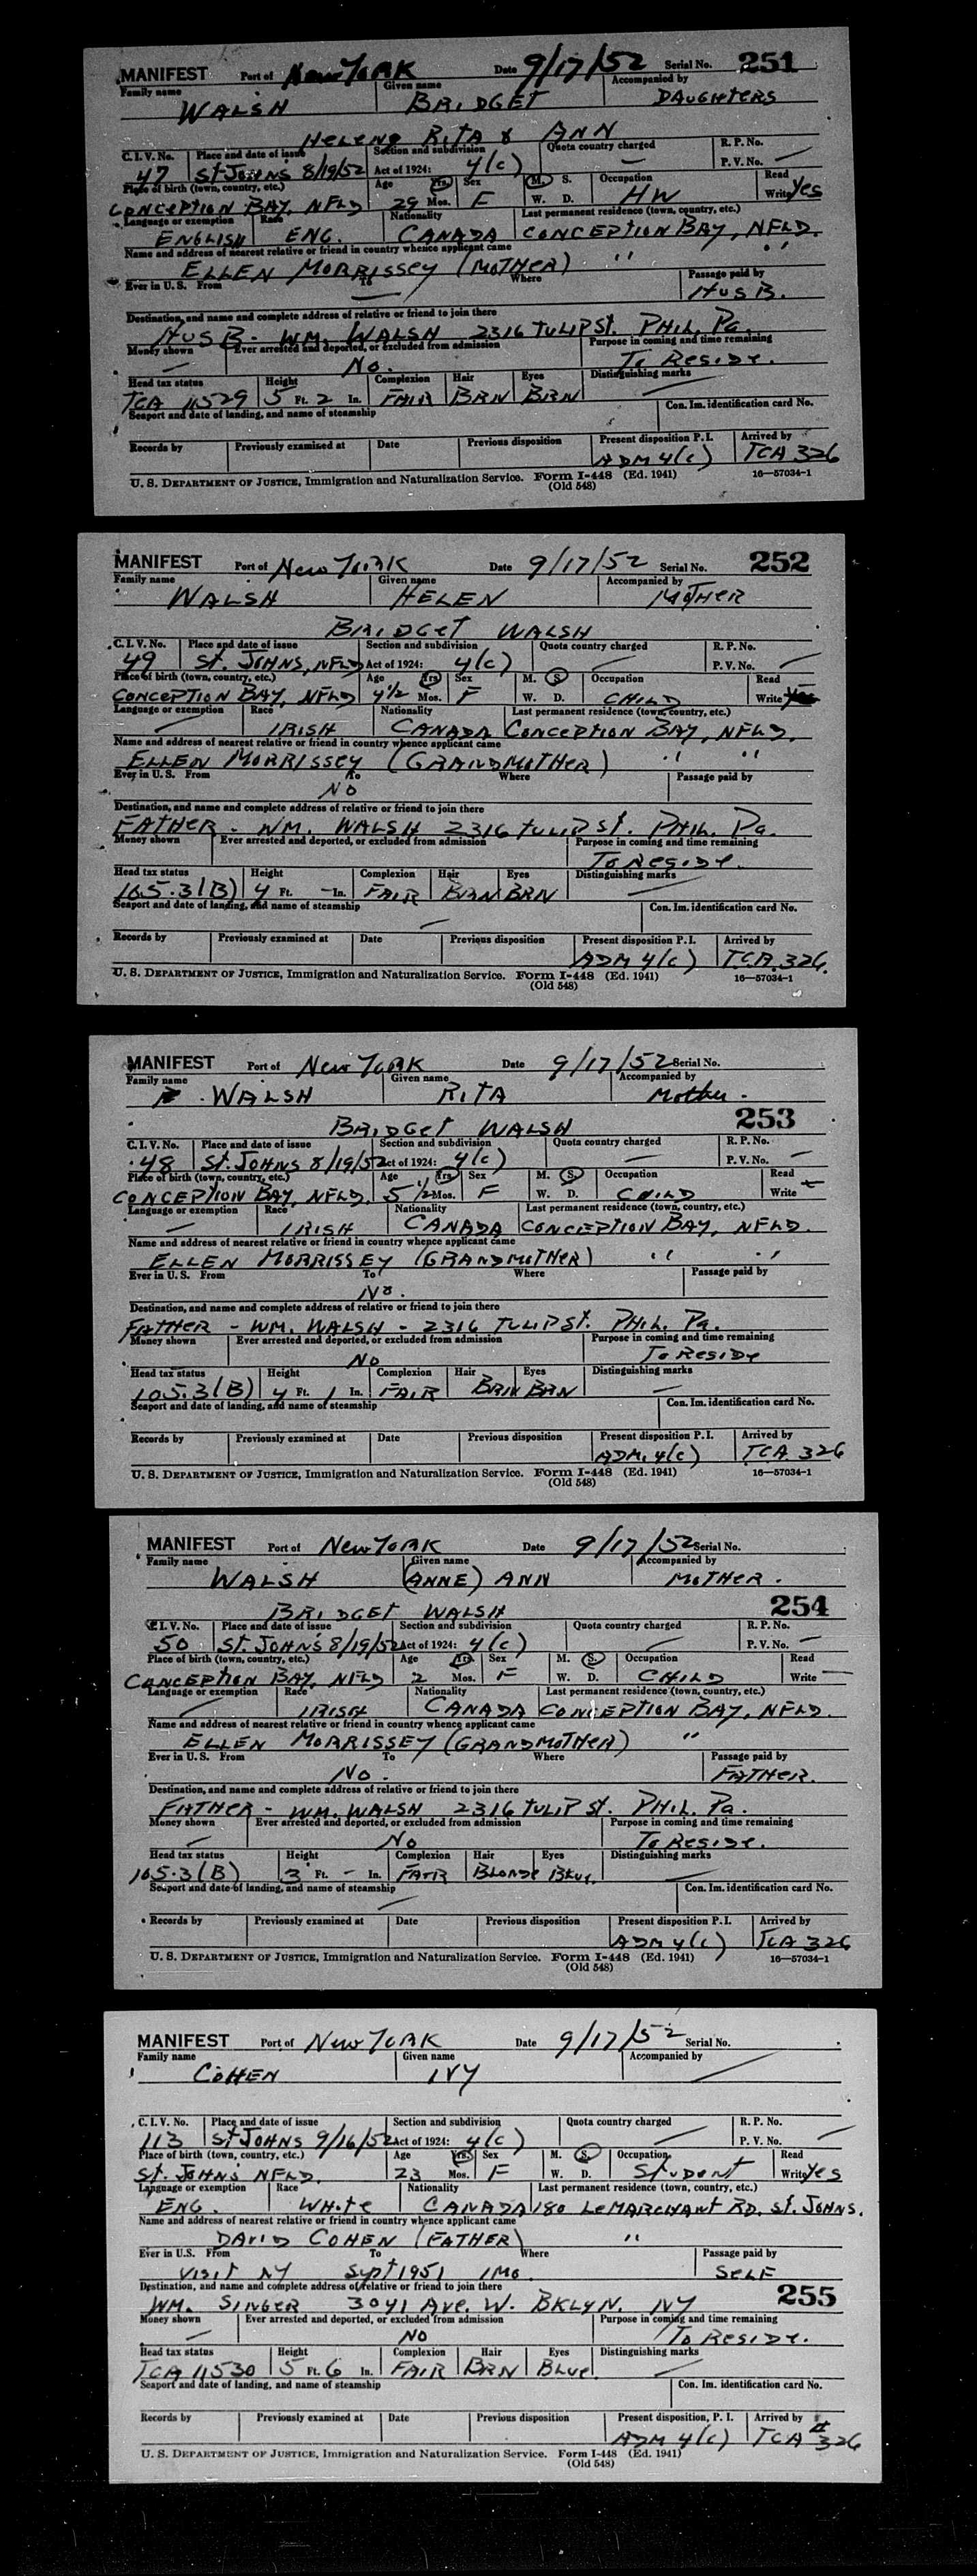 MANIFEST Port of New York Date 9/17/52 Serial No. 251
Family name Given name Accompanied by
WALSH BRIDGET DAUGHTERS
HELENE RITA & ANN
C. I. V. No. Place and date of issue Section and subdivision Quota country charged R. P. No.
47 St JOHNS 8/19/52 Act of 1924: 4(c) — P. V. No. —
Place of birth (town, country, etc.) Age Yrs. Sex M. S. Occupation Read
CONCEPTION BAY, NFLD 29 Mos. F W. D. HW Write Yes
Language or exemption Race Nationality Last permanent residence (town, country, etc.)
ENGLISH ENG. CANADA CONCEPTION BAY, NFLD.
Name and address of nearest relative or friend in country whence applicant came
ELLEN MORRISSEY (MOTHER) " "
Ever in U. S. From To Where Passage paid by
— HUSB.
Destination, and name and complete address of relative or friend to join there
HUSB - WM. WALSH 2316 TULIP St. PHIL. Pa.
Money shown Ever arrested and deported, or excluded from admission Purpose in coming and time remaining
— No. To Reside.
Head tax status Height Complexion Hair Eyes Distinguishing marks
TCA 11529 5 Ft. 2 In. FAIR BRN BRN —
Seaport and date of landing, and name of steamship Con. Im. identification card No.
Records by Previously examined at Date Previous disposition Present disposition P. I. Arrived by
ADM 4(c) TCA 326
U. S. DEPARTMENT OF JUSTICE, Immigration and Naturalization Service. Form I-448 (Ed. 1941) 16—57034-1
(Old 548)
MANIFEST Port of New York Date 9/17/52 Serial No. 252
Family name Given name Accompanied by
WALSH HELEN MOTHER
BRIDGET WALSH
C. I. V. No. Place and date of issue Section and subdivision Quota country charged R. P. No.
49 St. JOHNS, NFLD Act of 1924: 4(c) — P. V. No. —
Place of birth (town, country, etc.) Age Yrs. Sex M. S. Occupation Read
CONCEPTION BAY, NFLD 4½ Mos. F W. D. CHILD Write
Language or exemption Race Nationality Last permanent residence (town, country, etc.)
— IRISH CANADA CONCEPTION BAY, NFLD.
Name and address of nearest relative or friend in country whence applicant came
ELLEN MORRISSEY (GRANDMOTHER) " "
Ever in U. S. From To Where Passage paid by
NO
Destination, and name and complete address of relative or friend to join there
FATHER - WM. WALSH 2316 TULIP St. PHIL. Pa.
Money shown Ever arrested and deported, or excluded from admission Purpose in coming and time remaining
To Reside.
Head tax status Height Complexion Hair Eyes Distinguishing marks
105.3(B) 4 Ft. - In. FAIR BRN BRN —
Seaport and date of landing, and name of steamship Con. Im. identification card No.
—
Records by Previously examined at Date Previous disposition Present disposition P. I. Arrived by
ADM 4(c) T.C.A. 326.
U. S. DEPARTMENT OF JUSTICE, Immigration and Naturalization Service. Form I-448 (Ed. 1941) 16—57034-1
(Old 548)
MANIFEST Port of New York Date 9/17/52 Serial No.
Family name Given name Accompanied by
WALSH RITA Mother.
BRIDGET WALSH 253
C. I. V. No. Place and date of issue Section and subdivision Quota country charged R. P. No.
48 St. JOHNS 8/19/52 Act of 1924: 4(c) — P. V. No. —
Place of birth (town, country, etc.) Age Yrs. Sex M. S. Occupation Read
CONCEPTION BAY, NFLD. 5½ Mos. F W. D. CHILD Write —
Language or exemption Race Nationality Last permanent residence (town, country, etc.)
— IRISH CANADA CONCEPTION BAY, NFLD.
Name and address of nearest relative or friend in country whence applicant came
ELLEN MORRISSEY (GRANDMOTHER) " "
Ever in U. S. From To Where Passage paid by
No.
Destination, and name and complete address of relative or friend to join there
FATHER - WM. WALSH - 2316 TULIP St. PHIL. Pa.
Money shown Ever arrested and deported, or excluded from admission Purpose in coming and time remaining
No To Reside
Head tax status Height Complexion Hair Eyes Distinguishing marks
105.3(B) 4 Ft. 1 In. FAIR BRN BRN —
Seaport and date of landing, and name of steamship Con. Im. identification card No.
Records by Previously examined at Date Previous disposition Present disposition P. I. Arrived by
ADM. 4(c) TCA 326
U. S. DEPARTMENT OF JUSTICE, Immigration and Naturalization Service. Form I-448 (Ed. 1941) 16—57034-1
(Old 548)
MANIFEST Port of New York Date 9/17/52 Serial No.
Family name Given name Accompanied by
WALSH (ANNE) ANN MOTHER.
BRIDGET WALSH 254
C. I. V. No. Place and date of issue Section and subdivision Quota country charged R. P. No.
50 St. JOHN'S 8/19/52 Act of 1924: 4(c) — P. V. No. —
Place of birth (town, country, etc.) Age Yrs. Sex M. S. Occupation Read
CONCEPTION BAY, NFLD 2 Mos. F W. D. CHILD Write —
Language or exemption Race Nationality Last permanent residence (town, country, etc.)
— IRISH CANADA CONCEPTION BAY, NFLD.
Name and address of nearest relative or friend in country whence applicant came
ELLEN MORRISSEY (GRANDMOTHER) "
Ever in U. S. From To Where Passage paid by
No. FATHER.
Destination, and name and complete address of relative or friend to join there
FATHER - WM. WALSH 2316 TULIP St. PHIL. Pa.
Money shown Ever arrested and deported, or excluded from admission Purpose in coming and time remaining
— No To Reside.
Head tax status Height Complexion Hair Eyes Distinguishing marks
105.3(B) 3 Ft. - In. FAIR Blonde Blue. —
Seaport and date of landing, and name of steamship Con. Im. identification card No.
—
Records by Previously examined at Date Previous disposition Present disposition P. I. Arrived by
ADM 4(c) TCA 326
U. S. DEPARTMENT OF JUSTICE, Immigration and Naturalization Service. Form I-448 (Ed. 1941) 16—57034-1
(Old 548)
MANIFEST Port of New York Date 9/17/52 Serial No.
Family name Given name Accompanied by
COHEN IVY —
C. I. V. No. Place and date of issue Section and subdivision Quota country charged R. P. No.
113 St JOHNS 9/16/52 Act of 1924: 4(c) — P. V. No. —
Place of birth (town, country, etc.) Age Yrs. Sex M. S. Occupation Read
St. JOHNS NFLD. 23 Mos. F W. D. Student Write Yes
Language or exemption Race Nationality Last permanent residence (town, country, etc.)
ENG. White CANADA 180 LeMARCHANT RD. St. JOHNS.
Name and address of nearest relative or friend in country whence applicant came
DAVID COHEN (FATHER) "
Ever in U.S. From To Where Passage paid by
Visit NY Sept 1951 1 Mo. SELF
Destination, and name and complete address of relative or friend to join there 255
WM. SINGER 3041 Ave. W. BKLYN. NY
Money shown Ever arrested and deported, or excluded from admission Purpose in coming and time remaining
— NO To Reside.
Head tax status Height Complexion Hair Eyes Distinguishing marks
TCA 11530 5 Ft. 6 In. FAIR BRN Blue —
Seaport and date of landing, and name of steamship Con. Im. identification card No.
Records by Previously examined at Date Previous disposition Present disposition, P. I. Arrived by
ADM 4(c) TCA # 326
U. S. DEPARTMENT OF JUSTICE, Immigration and Naturalization Service. Form I-448 (Ed. 1941)
(Old 548)